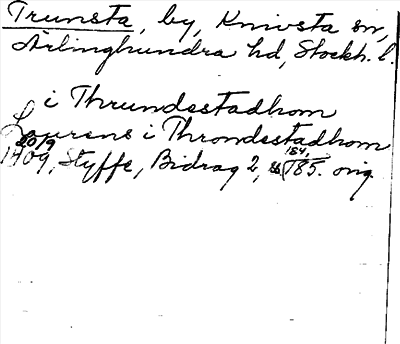 Trunsta, by, Knivsta sn,
Ärlinghundra hd, Stockh. l.
i Thrundestadhom
Laurens i Throndestadhom
20/9
1409, Styffe, Bidrag 2, s 184,
185. orig